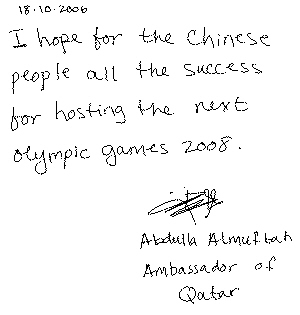 18.10.2006
I hope for the Chinese
people all the success
for hosting the next
olympic games 2008.
Abdulla Almuftah
Ambassador of
Qatar